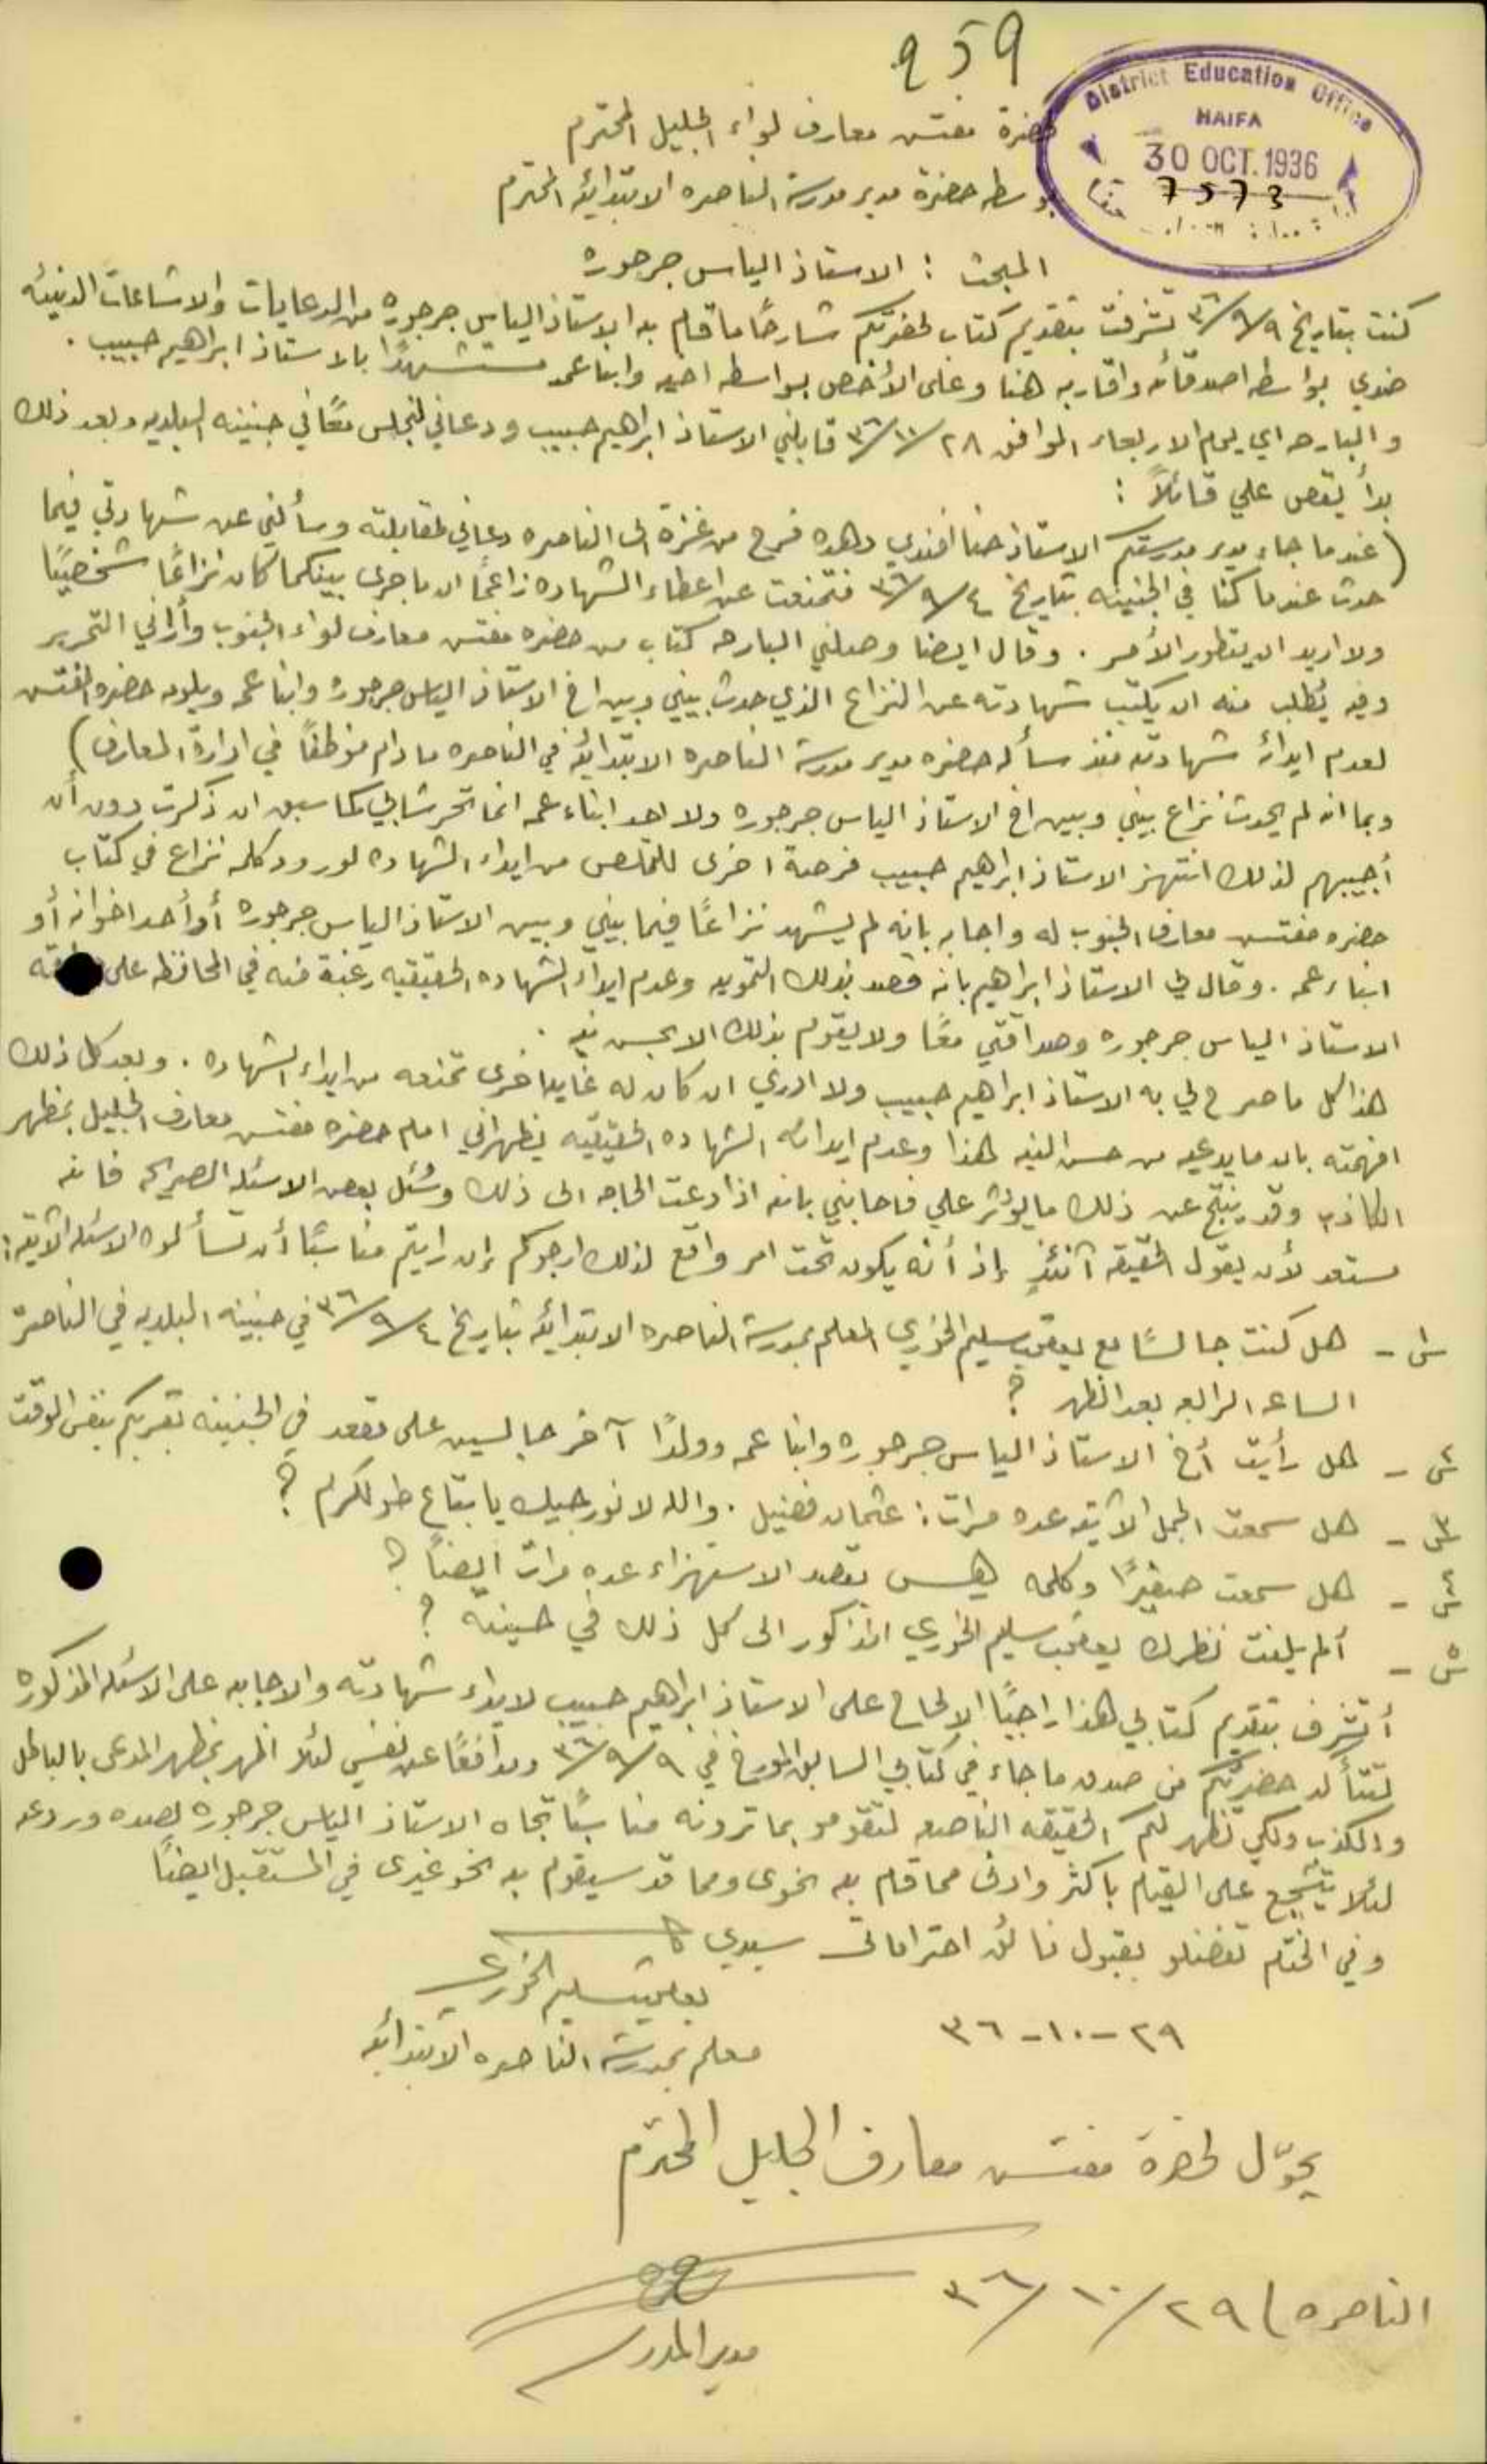 959
District Education Office
HAIFA
30 OCT. 1936
7573
حضرة مفتش معارف لواء الجليل المحترم
بوسطه حضرة مدير مدرسة الناصره الابتدائيه المحترم
المبحث : الاستاذ الياس جرجوره
كنت بتاريخ ٩/٩/٣٦ تشرفت بتقديم كتاب لحضرتكم شارحًا ما قام به الاستاذ الياس جرجوره من الدعايات والاشاعات الدنيئه
ضدي بواسطه اصدقائه واقاربه هنا وعلى الأخص بواسطه اخيه وابنا عمه مستشهدًا بالاستاذ ابراهيم حبيب .
والبارحه اي يوم الاربعاء الموافق ٢٨/١٠/٣٦ قابلني الاستاذ ابراهيم حبيب ودعاني لنجلس معًا في جنينه البلديه وبعد ذلك
بدأ يقص علي قائلاً :
(عندما جاء مدير مدرستكم الاستاذ حنا افندي دهده فرح من غزة الى الناصره دعاني لمقابلته وسألني عن شهادتي فيما
حدث عندما كنا في الجنينه بتاريخ ٤/٩/٣٦ فتمنعت عن اعطاء الشهاده زاعمًا ان ما جرى بينكما كان نزاعًا شخصيًا
ولا اريد ان يتطور الأمر . وقال ايضا وصلني البارحه كتاب من حضره مفتش معارف لواء الجنوب وأراني التحرير
وفيه يُطلب منه ان يكتب شهادته عن النزاع الذي حدث بيني وبين اخ الاستاذ الياس جرجوره وابنا عمه ويلومه حضره المفتش
لعدم ايدائه شهادته منذ سأله حضره مدير مدرسة الناصره الابتدائيه في الناصره ما دام موظفًا في ادارة المعارف)
وبما انه لم يحدث نزاع بيني وبين اخ الاستاذ الياس جرجوره ولا احد ابناء عمه انما تحرشا بي كما سبق ان ذكرت دون أن
أجيبهم لذلك انتهز الاستاذ ابراهيم حبيب فرصة اخرى للتخلص من ايداء الشهاده لورود كلمه نزاع في كتاب
حضره مفتش معارف الجنوب له واجابه بانه لم يشهد نزاعًا فيما بيني وبين الاستاذ الياس جرجوره أو أحد اخوانه أو
ابناء عمه . وقال لي الاستاذ ابراهيم بانه قصد بذلك التمويه وعدم ايداء الشهاده الحقيقيه رغبة منه في المحافظه على
الاستاذ الياس جرجوره وصداقتي معًا ولا يقوم بذلك الا بحسن نيه .
هذا كل ما صرح لي به الاستاذ ابراهيم حبيب ولا ادري ان كان له غايه اخرى تمنعه من ايداء الشهاده . وبعد كل ذلك
افهمته بان ما يدعيه من حسن النيه لهذا وعدم ايدائه الشهاده الحقيقيه يظهراني امام حضره مفتش معارف الجليل بمظهر
الكاذب وقد ينتج عن ذلك ما يؤثر علي فاجابني بانه اذا دعت الحاجه الى ذلك وسُئل بعض الاسئله الصريحه فانه
مستعد لأن يقول الحقيقه آنئذٍ إذ أنه يكون تحت امر واقع لذلك ارجوكم إن رايتم مناسبًا أن تسألوه الاسئله الآتيه :
س١ - هل كنت جالسًا مع يعقوب سليم الخوري المعلم بمدرسة الناصره الابتدائيه بتاريخ ٤/٩/٣٦ في جنينه البلديه في الناصرة
الساعه الرابعه بعد الظهر ؟
س٢ - هل رأيت أخ الاستاذ الياس جرجوره وابنا عمه وولدًا آخر جالسين على مقعد في الجنينه بقربكم بنفس الوقت ؟
س٣ - هل سمعت الجمل الآتيه عده مرات : عثمان فضيل . والله لا نورجيك يا بتاع طولكرم ؟
س٤ - هل سمعت صفيرًا وكلمه هيس بقصد الاستهزاء عده مرات ايضاً ؟
س٥ - ألم يلفت نظرك يعقوب سليم الخوري المذكور الى كل ذلك في حينه ؟
أتشرف بتقديم كتابي هذا راجيًا الإلحاح على الاستاذ ابراهيم حبيب لايداء شهادته والاجابه على الاسئله المذكوره
لتتأكد حضرتكم من صدق ما جاء في كتابي السابق المؤرخ في ٩/٩/٣٦ ومدافعًا عن نفسي لئلا اظهر بمظهر المدعي بالباطل
والكذب ولكي تظهر لكم الحقيقه الناصعه لتقومو بما ترونه مناسبًا تجاه الاستاذ الياس جرجوره لصده وردعه
لئلا يتشجع على القيام باكثر وادنى مما قام به نحوى ومما قد سيقوم به نحو غيرى في المستقبل ايضًا
وفي الختام تفضلو بقبول فائق احتراماتي سيدي
يعقوب سليم الخوري
٢٩-١٠-٣٦
معلم بمدرسة الناصره الابتدائيه
يحوّل لحضرة مفتش معارف الجليل المحترم
الناصره ٢٩/١٠/٣٦
مدير المدرسه